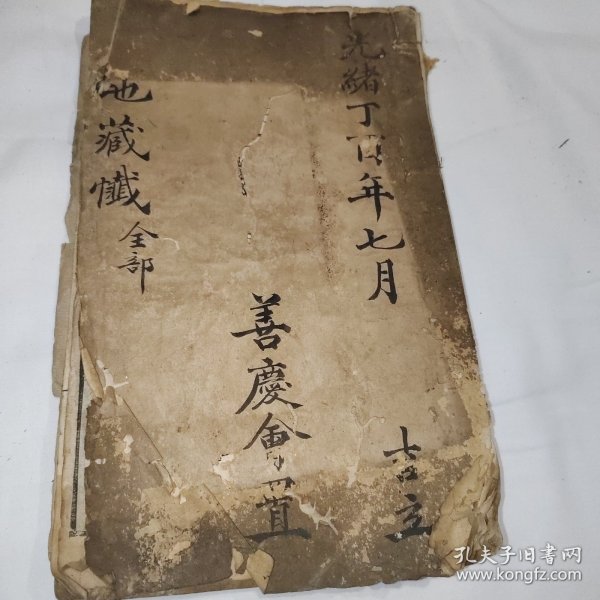 光緒丁酉年七月
吉立
善慶會置
地藏懺全部
孔夫子旧书网
www.kongfz.com